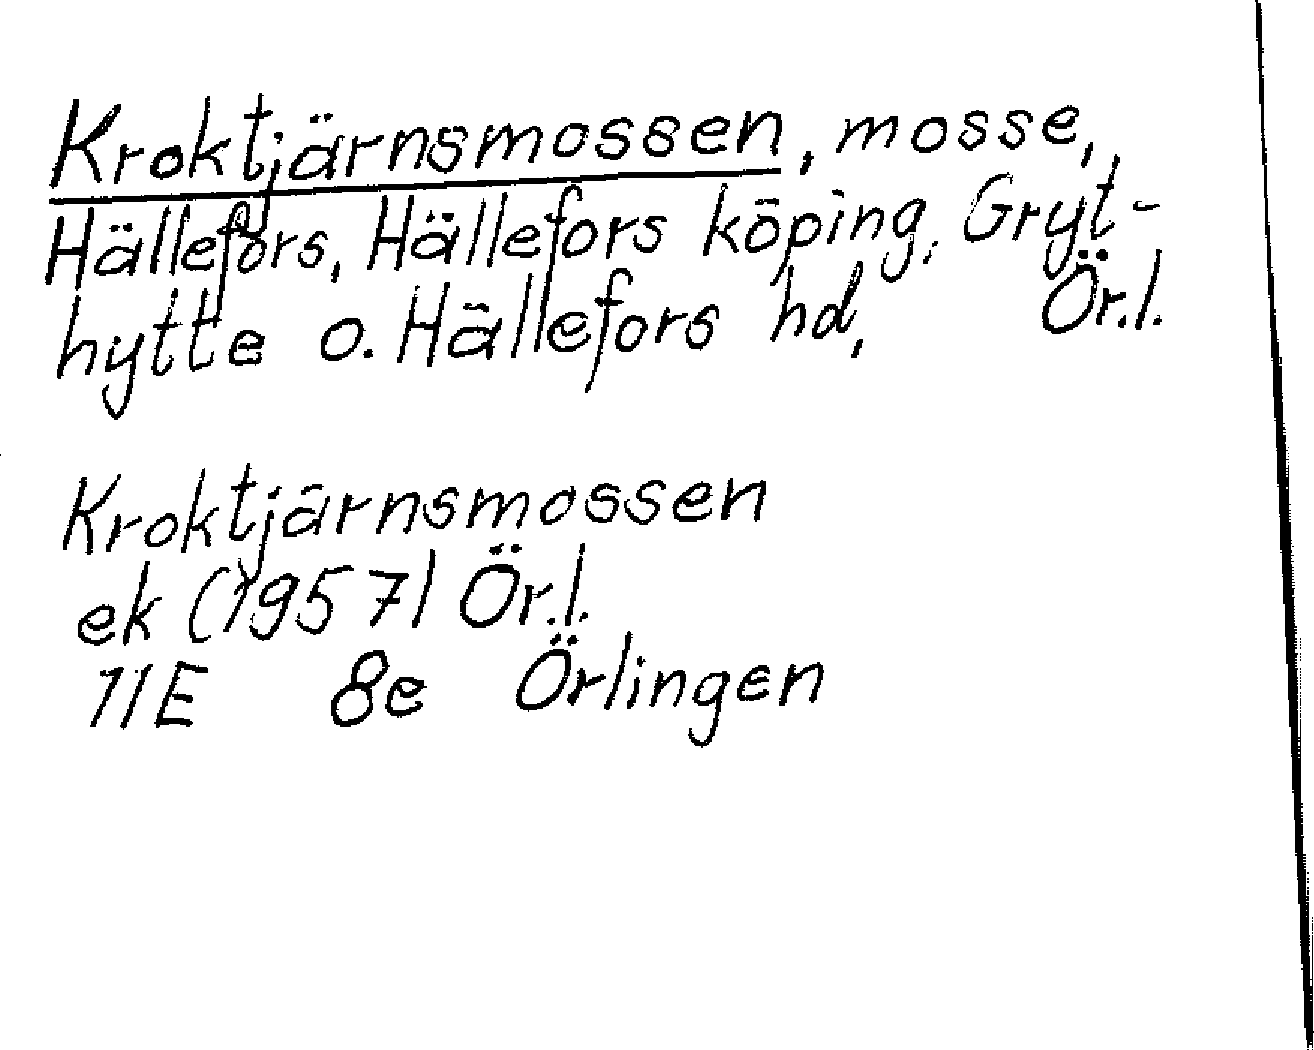 Kroktjärnsmossen, mosse,
Hällefors, Hällefors köping, Gryt-
hytte o. Hällefors hd, Ör.l.
Kroktjärnsmossen
ek (1957) Ör.l.
11E 8e Örlingen